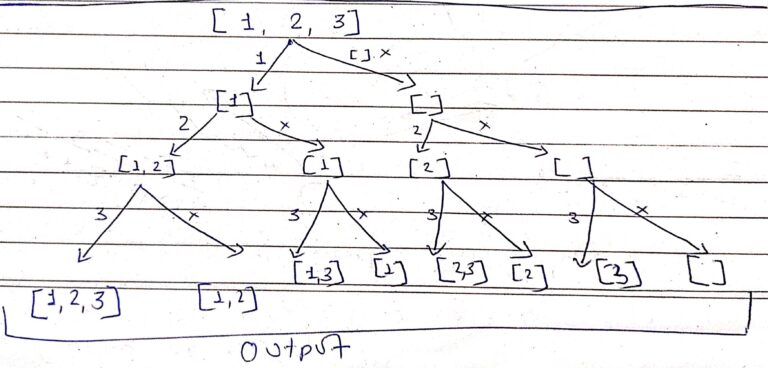 [ 1, 2, 3]
1 [].x
[1] [ ]
2 x 2 x
[1,2] [1] [2] [ ]
3 x 3 x 3 x 3 x
[1,3] [1] [2,3] [2] [3] [ ]
[1,2,3] [1,2]
Output